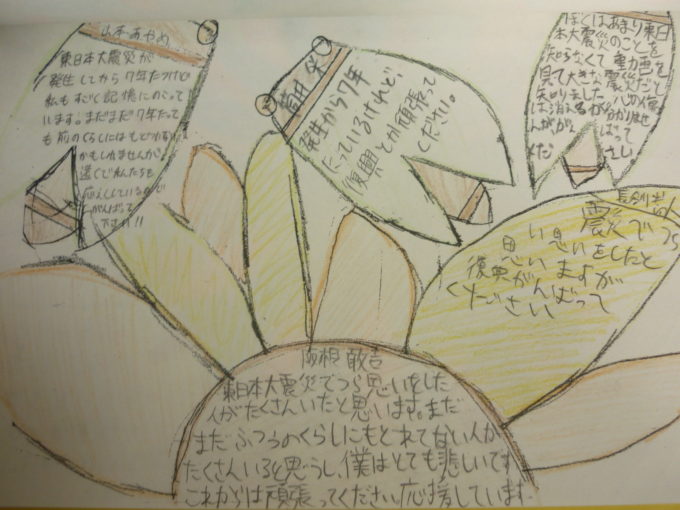 山本あやめ
東日本大震災が
発生してから7年たつけど
私もすごく記憶にのこって
います。まだまだ7年たって
も前のくらしにはもどれない
かもしれませんが、
遠くで私たちも
応えんしているので
がんばって
下さい!!
筒井
発生から7年
たっているけれど、
復興とか頑張って
ください。
ぼくはあまり東日
本大震災のことを
知らなくて動画を
見て大きな震災だと
知りました。心の傷
は消えるか分かりませ
んががんばって
ください
震災でつら
い思いをしたと
思いますが
復興がんばって
ください
阪根 敢吉
東日本大震災でつら思いをした
人がたくさんいたと思います。まだ
まだふつうのくらしにもどれてない人が
たくさんいると思うし、僕はとても悲しいです
これからは頑張ってください応援しています